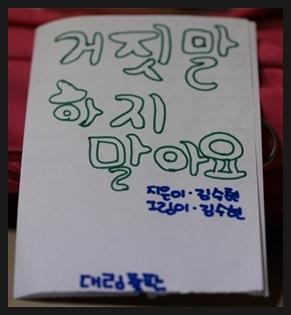 거짓말
하지
말아요
지은이·김수현
그림이·김수현